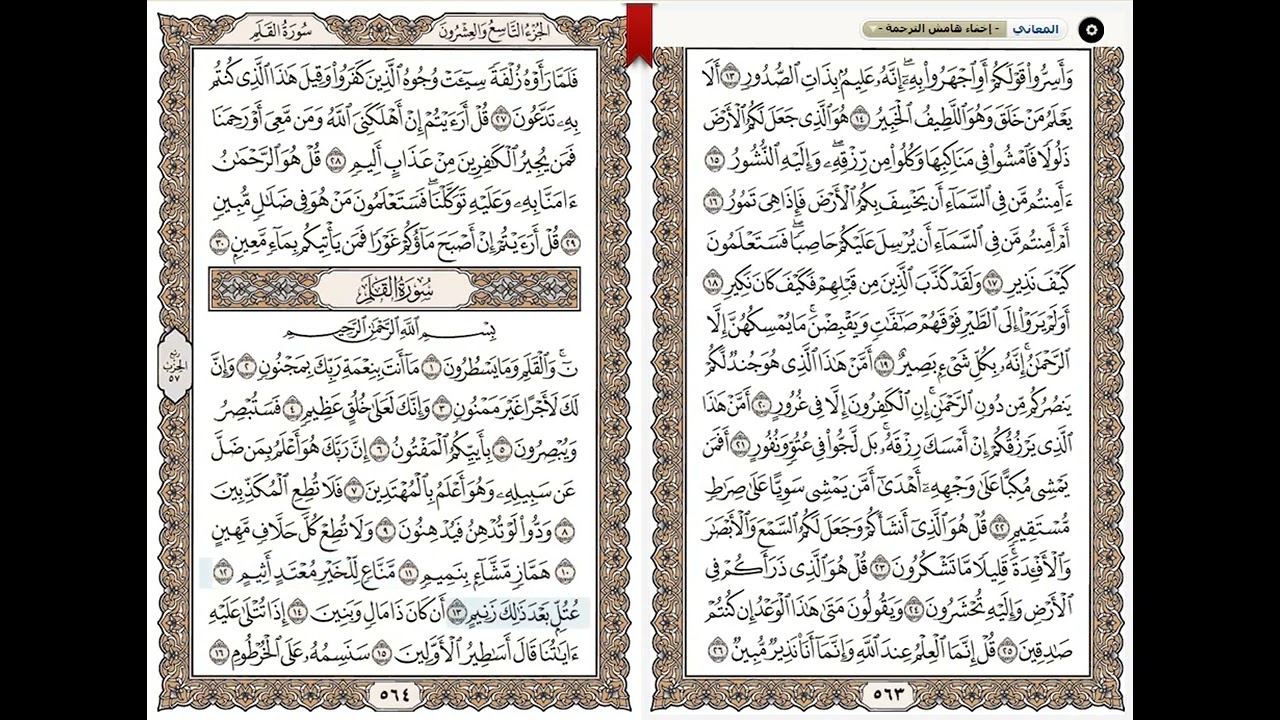 المعاني
- إخفاء هامش الترجمة -
وَأَسِرُّوا۟ قَوْلَكُمْ أَوِ ٱجْهَرُوا۟ بِهِۦٓ ۖ إِنَّهُۥ عَلِيمٌۢ بِذَاتِ ٱلصُّدُورِ ١٣ أَلَا
يَعْلَمُ مَنْ خَلَقَ وَهُوَ ٱللَّطِيفُ ٱلْخَبِيرُ ١٤ هُوَ ٱلَّذِى جَعَلَ لَكُمُ ٱلْأَرْضَ
ذَلُولًا فَٱمْشُوا۟ فِى مَنَاكِبِهَا وَكُلُوا۟ مِن رِّزْقِهِۦ ۖ وَإِلَيْهِ ٱلنُّشُورُ ١٥
ءَأَمِنتُم مَّن فِى ٱلسَّمَآءِ أَن يَخْسِفَ بِكُمُ ٱلْأَرْضَ فَإِذَا هِىَ تَمُورُ ١٦
أَمْ أَمِنتُم مَّن فِى ٱلسَّمَآءِ أَن يُرْسِلَ عَلَيْكُمْ حَاصِبًا ۖ فَسَتَعْلَمُونَ
كَيْفَ نَذِيرِ ١٧ وَلَقَدْ كَذَّبَ ٱلَّذِينَ مِن قَبْلِهِمْ فَكَيْفَ كَانَ نَكِيرِ ١٨
أَوَلَمْ يَرَوْا۟ إِلَى ٱلطَّيْرِ فَوْقَهُمْ صَٰٓفَّٰتٍ وَيَقْبِضْنَ ۚ مَا يُمْسِكُهُنَّ إِلَّا
ٱلرَّحْمَٰنُ ۚ إِنَّهُۥ بِكُلِّ شَىْءٍۭ بَصِيرٌ ١٩ أَمَّنْ هَٰذَا ٱلَّذِى هُوَ جُندٌ لَّكُمْ
يَنصُرُكُم مِّن دُونِ ٱلرَّحْمَٰنِ ۚ إِنِ ٱلْكَٰفِرُونَ إِلَّا فِى غُرُورٍ ٢٠ أَمَّنْ هَٰذَا
ٱلَّذِى يَرْزُقُكُمْ إِنْ أَمْسَكَ رِزْقَهُۥ ۚ بَل لَّجُّوا۟ فِى عُتُوٍّ وَنُفُورٍ ٢١ أَفَمَن
يَمْشِى مُكِبًّا عَلَىٰ وَجْهِهِۦٓ أَهْدَىٰٓ أَمَّن يَمْشِى سَوِيًّا عَلَىٰ صِرَٰطٍ
مُّسْتَقِيمٍ ٢٢ قُلْ هُوَ ٱلَّذِىٓ أَنشَأَكُمْ وَجَعَلَ لَكُمُ ٱلسَّمْعَ وَٱلْأَبْصَٰرَ
وَٱلْأَفْـِٔدَةَ ۖ قَلِيلًا مَّا تَشْكُرُونَ ٢٣ قُلْ هُوَ ٱلَّذِى ذَرَأَكُمْ فِى
ٱلْأَرْضِ وَإِلَيْهِ تُحْشَرُونَ ٢٤ وَيَقُولُونَ مَتَىٰ هَٰذَا ٱلْوَعْدُ إِن كُنتُمْ
صَٰدِقِينَ ٢٥ قُلْ إِنَّمَا ٱلْعِلْمُ عِندَ ٱللَّهِ وَإِنَّمَآ أَنَا۠ نَذِيرٌ مُّبِينٌ ٢٦
٥٦٣
الجزء التاسع والعشرون
سورة القلم
فَلَمَّا رَأَوْهُ زُلْفَةً سِيٓـَٔتْ وُجُوهُ ٱلَّذِينَ كَفَرُوا۟ وَقِيلَ هَٰذَا ٱلَّذِى كُنتُم
بِهِۦ تَدَّعُونَ ٢٧ قُلْ أَرَءَيْتُمْ إِنْ أَهْلَكَنِىَ ٱللَّهُ وَمَن مَّعِىَ أَوْ رَحِمَنَا
فَمَن يُجِيرُ ٱلْكَٰفِرِينَ مِنْ عَذَابٍ أَلِيمٍ ٢٨ قُلْ هُوَ ٱلرَّحْمَٰنُ
ءَامَنَّا بِهِۦ وَعَلَيْهِ تَوَكَّلْنَا ۖ فَسَتَعْلَمُونَ مَنْ هُوَ فِى ضَلَٰلٍ مُّبِينٍ
٢٩ قُلْ أَرَءَيْتُمْ إِنْ أَصْبَحَ مَآؤُكُمْ غَوْرًا فَمَن يَأْتِيكُم بِمَآءٍ مَّعِينٍۭ ٣٠
سورة القلم
بِسْمِ ٱللَّهِ ٱلرَّحْمَٰنِ ٱلرَّحِيمِ
نٓ ۚ وَٱلْقَلَمِ وَمَا يَسْطُرُونَ ١ مَآ أَنتَ بِنِعْمَةِ رَبِّكَ بِمَجْنُونٍ ٢ وَإِنَّ
لَكَ لَأَجْرًا غَيْرَ مَمْنُونٍ ٣ وَإِنَّكَ لَعَلَىٰ خُلُقٍ عَظِيمٍ ٤ فَسَتُبْصِرُ
وَيُبْصِرُونَ ٥ بِأَييِّكُمُ ٱلْمَفْتُونُ ٦ إِنَّ رَبَّكَ هُوَ أَعْلَمُ بِمَن ضَلَّ
عَن سَبِيلِهِۦ وَهُوَ أَعْلَمُ بِٱلْمُهْتَدِينَ ٧ فَلَا تُطِعِ ٱلْمُكَذِّبِينَ
٨ وَدُّوا۟ لَوْ تُدْهِنُ فَيُدْهِنُونَ ٩ وَلَا تُطِعْ كُلَّ حَلَّافٍ مَّهِينٍ
١٠ هَمَّازٍ مَّشَّآءٍۭ بِنَمِيمٍ ١١ مَّنَّاعٍ لِّلْخَيْرِ مُعْتَدٍ أَثِيمٍ ١٢
عُتُلٍّۭ بَعْدَ ذَٰلِكَ زَنِيمٍ ١٣ أَن كَانَ ذَا مَالٍ وَبَنِينَ ١٤ إِذَا تُتْلَىٰ عَلَيْهِ
ءَايَٰتُنَا قَالَ أَسَٰطِيرُ ٱلْأَوَّلِينَ ١٥ سَنَسِمُهُۥ عَلَى ٱلْخُرْطُومِ ١٦
ربع
الحزب
٥٧
٥٦٤